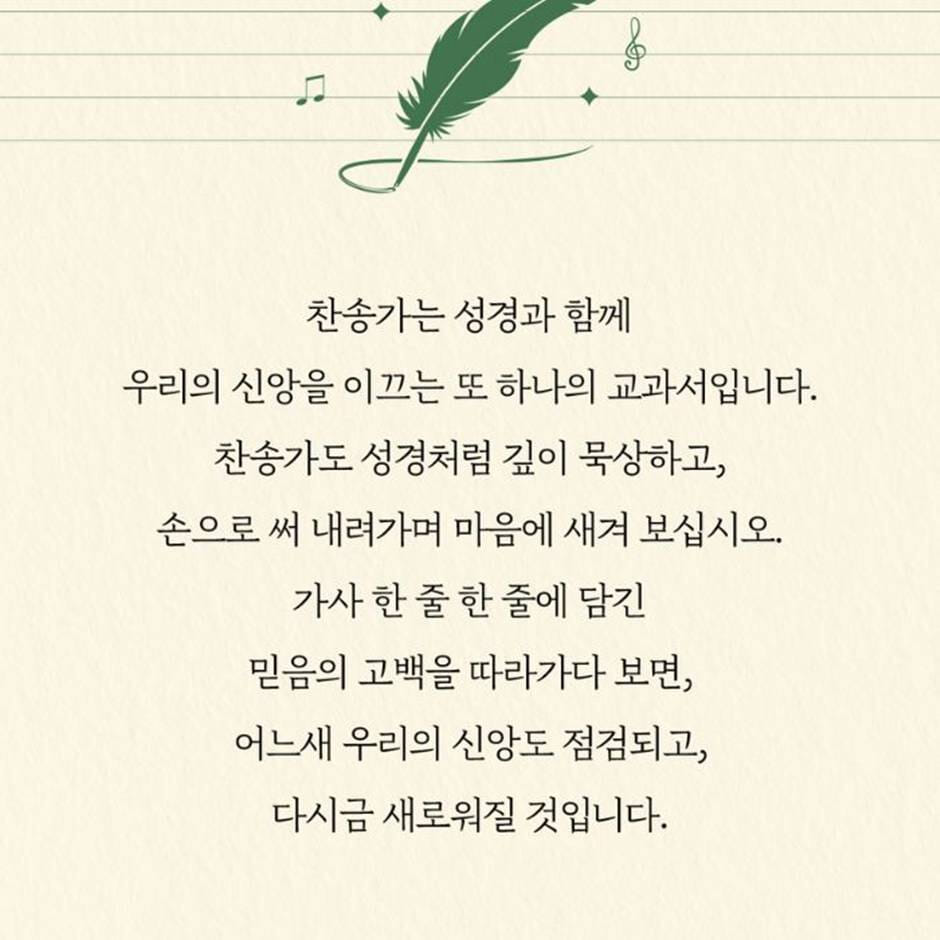 찬송가는 성경과 함께
우리의 신앙을 이끄는 또 하나의 교과서입니다.
찬송가도 성경처럼 깊이 묵상하고,
손으로 써 내려가며 마음에 새겨 보십시오.
가사 한 줄 한 줄에 담긴
믿음의 고백을 따라가다 보면,
어느새 우리의 신앙도 점검되고,
다시금 새로워질 것입니다.